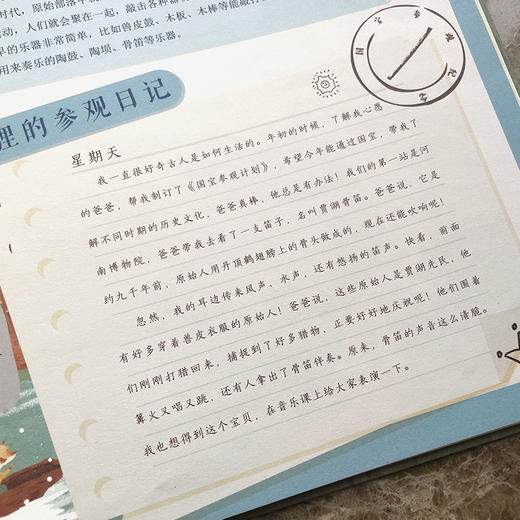 时代，原始部落
活动，人们就会聚在一起，敲击各种器
早的乐器非常简单，比如兽皮鼓、木板、木棒等能敲
用来奏乐的陶鼓、陶埙、骨笛等乐器。
国宝参观纪念
里的参观日记
星期天
我一直很好奇古人是如何生活的。年初的时候，了解我心愿
的爸爸，帮我制订了《国宝参观计划》，希望今年能通过国宝，带我了
解不同时期的历史文化，爸爸真棒，他总是有办法！我们的第一站是河
南博物院，爸爸带我去看了一支笛子，名叫贾湖骨笛。爸爸说，它是
约九千年前，原始人用丹顶鹤翅膀上的骨头做成的，现在还能吹响呢！
忽然，我的耳边传来风声、水声，还有悠扬的笛声。快看，前面
有好多穿着兽皮衣服的原始人！爸爸说，这些原始人是贾湖先民，他
们刚刚打猎回来，捕捉到了好多猎物，正要好好地庆祝呢！他们围着
篝火又唱又跳，还有人拿出了骨笛伴奏。原来，骨笛的声音这么清脆。
我也想得到这个宝贝，在音乐课上给大家表演一下。